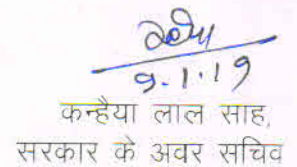 9.1.19
कन्हैया लाल साह,
सरकार के अवर सचिव